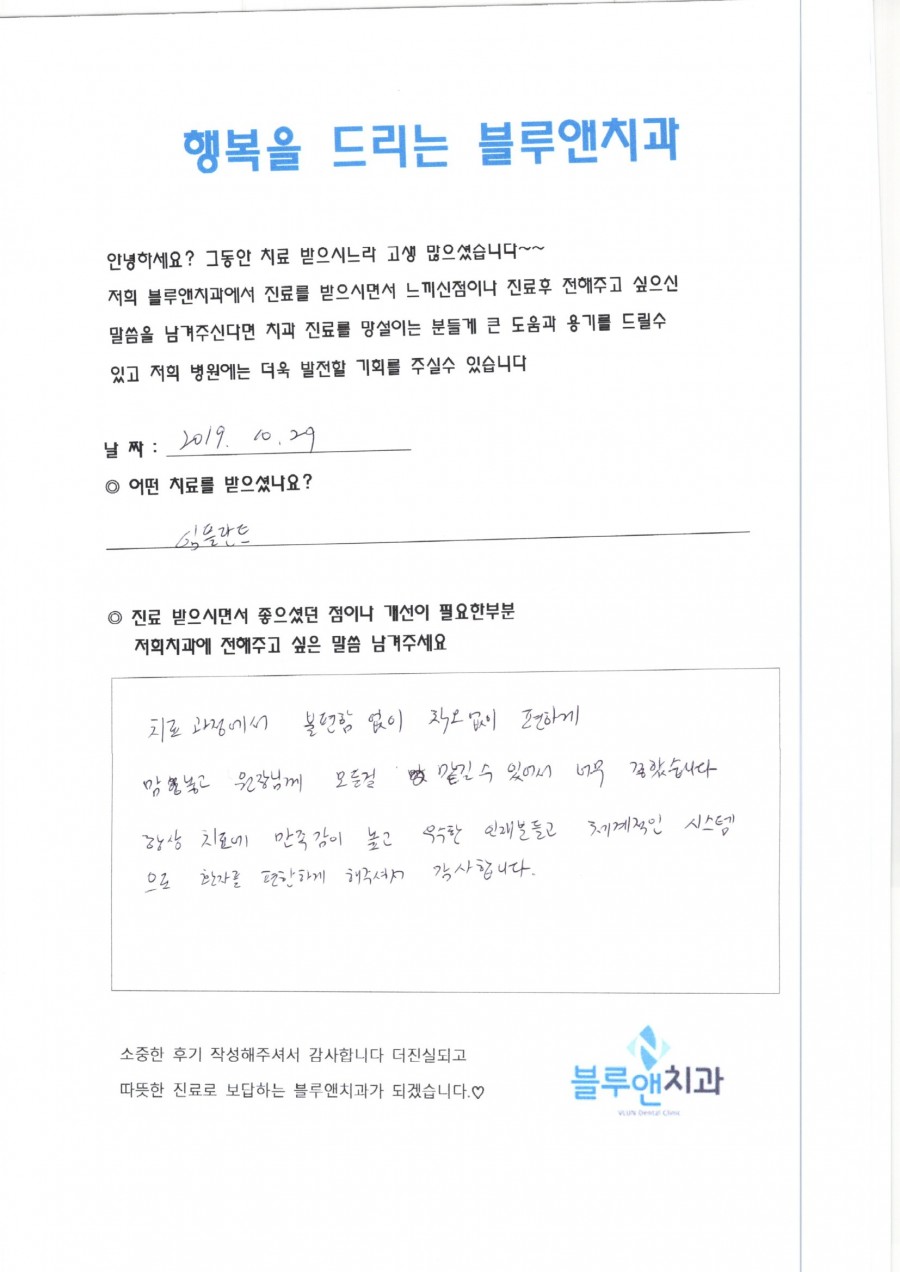 행복을 드리는 블루앤치과
안녕하세요? 그동안 치료 받으시느라 고생 많으셨습니다~~
저희 블루앤치과에서 진료를 받으시면서 느끼신점이나 진료후 전해주고 싶으신
말씀을 남겨주신다면 치과 진료를 망설이는 분들게 큰 도움과 용기를 드릴수
있고 저희 병원에는 더욱 발전할 기회를 주실수 있습니다
날 짜 : 2019. 10. 29
◎ 어떤 치료를 받으셨나요?
임플란트
◎ 진료 받으시면서 좋으셨던 점이나 개선이 필요한부분
저희치과에 전해주고 싶은 말씀 남겨주세요
치료 과정에서 불편함 없이 착오없이 편하게
맘 놓고 원장님께 모든걸 맡길수 있어서 너무 좋았습니다
항상 치료에 만족감이 높고 우수한 인재분들고 체계적인 시스템
으로 환자를 편한하게 해주셔서 감사합니다.
소중한 후기 작성해주셔서 감사합니다 더진실되고
따뜻한 진료로 보답하는 블루앤치과가 되겠습니다.♡
블루앤치과
Dental Clinic